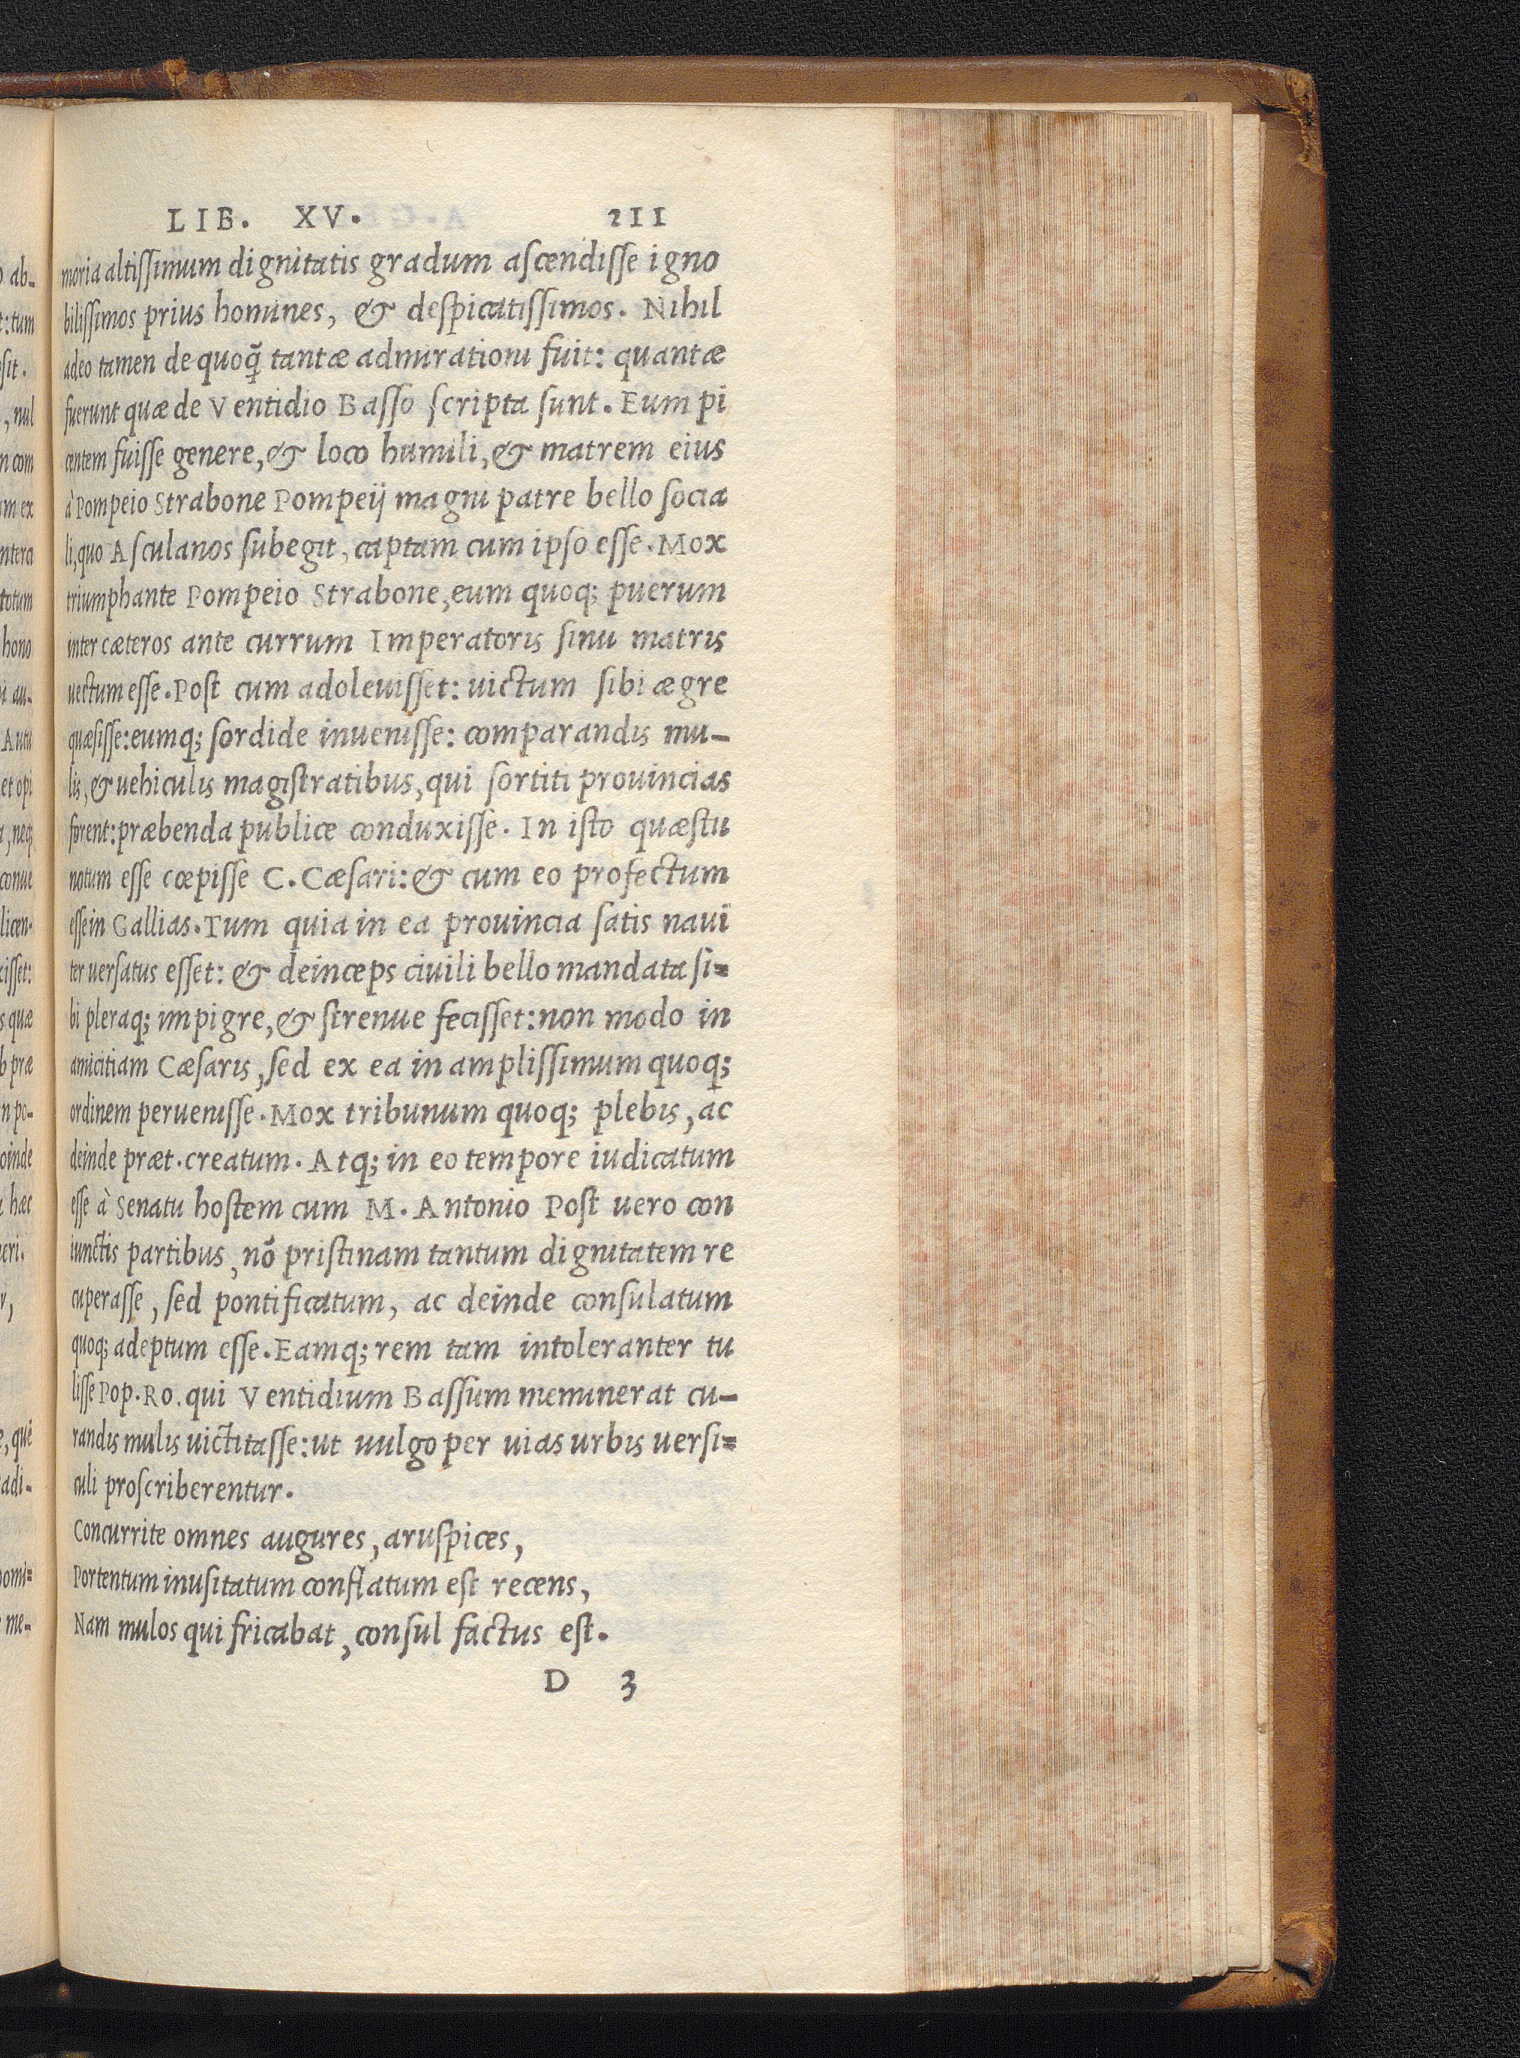 LIB. XV. 211
moria altissimum dignitatis gradum ascendisse igno
bilissimos prius homines, & despicatissimos. Nihil
adeo tamen de quoq̃ tantæ admirationi fuit: quantæ
fuerunt quæ de Ventidio Basso scripta sunt. Eum pi
centem fuisse genere, & loco humili, & matrem eius
à Pompeio Strabone Pompeij magni patre bello socia
li, quo Asculanos subegit, captam cum ipso esse. Mox
triumphante Pompeio Strabone, eum quoq; puerum
inter cæteros ante currum Imperatoris sinu matris
uectum esse. Post cum adoleuisset: uictum sibi ægre
quæsisse: eumq; sordide inuenisse: comparandis mu-
lis, & uehiculis magistratibus, qui sortiti prouincias
forent: præbenda publice conduxisse. In isto quæstu
notum esse cœpisse C. Cæsari: & cum eo profectum
esse in Gallias. Tum quia in ea prouincia satis naui
ter uersatus esset: & deinceps ciuili bello mandata si=
bi pleraq; impigre, & strenue fecisset: non modo in
amicitiam Cæsaris, sed ex ea in amplissimum quoq;
ordinem peruenisse. Mox tribunum quoq; plebis, ac
deinde præt. creatum. Atq; in eo tempore iudicatum
esse à Senatu hostem cum M. Antonio Post uero con
iunctis partibus, nõ pristinam tantum dignitatem re
cuperasse, sed pontificatum, ac deinde consulatum
quoq; adeptum esse. Eamq; rem tam intoleranter tu
lisse Pop. Ro. qui Ventidium Bassum meminerat cu-
randis mulis uictitasse: ut uulgo per uias urbis uersi=
culi proscriberentur.
Concurrite omnes augures, aruspices,
Portentum inusitatum conflatum est recens,
Nam mulos qui fricabat, consul factus est.
D 3